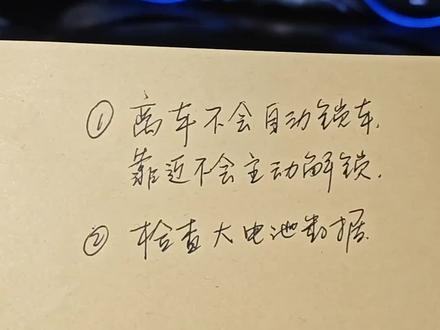 ① 离车不会自动锁车.
靠近不会主动解锁.
② 检查大电池数据.